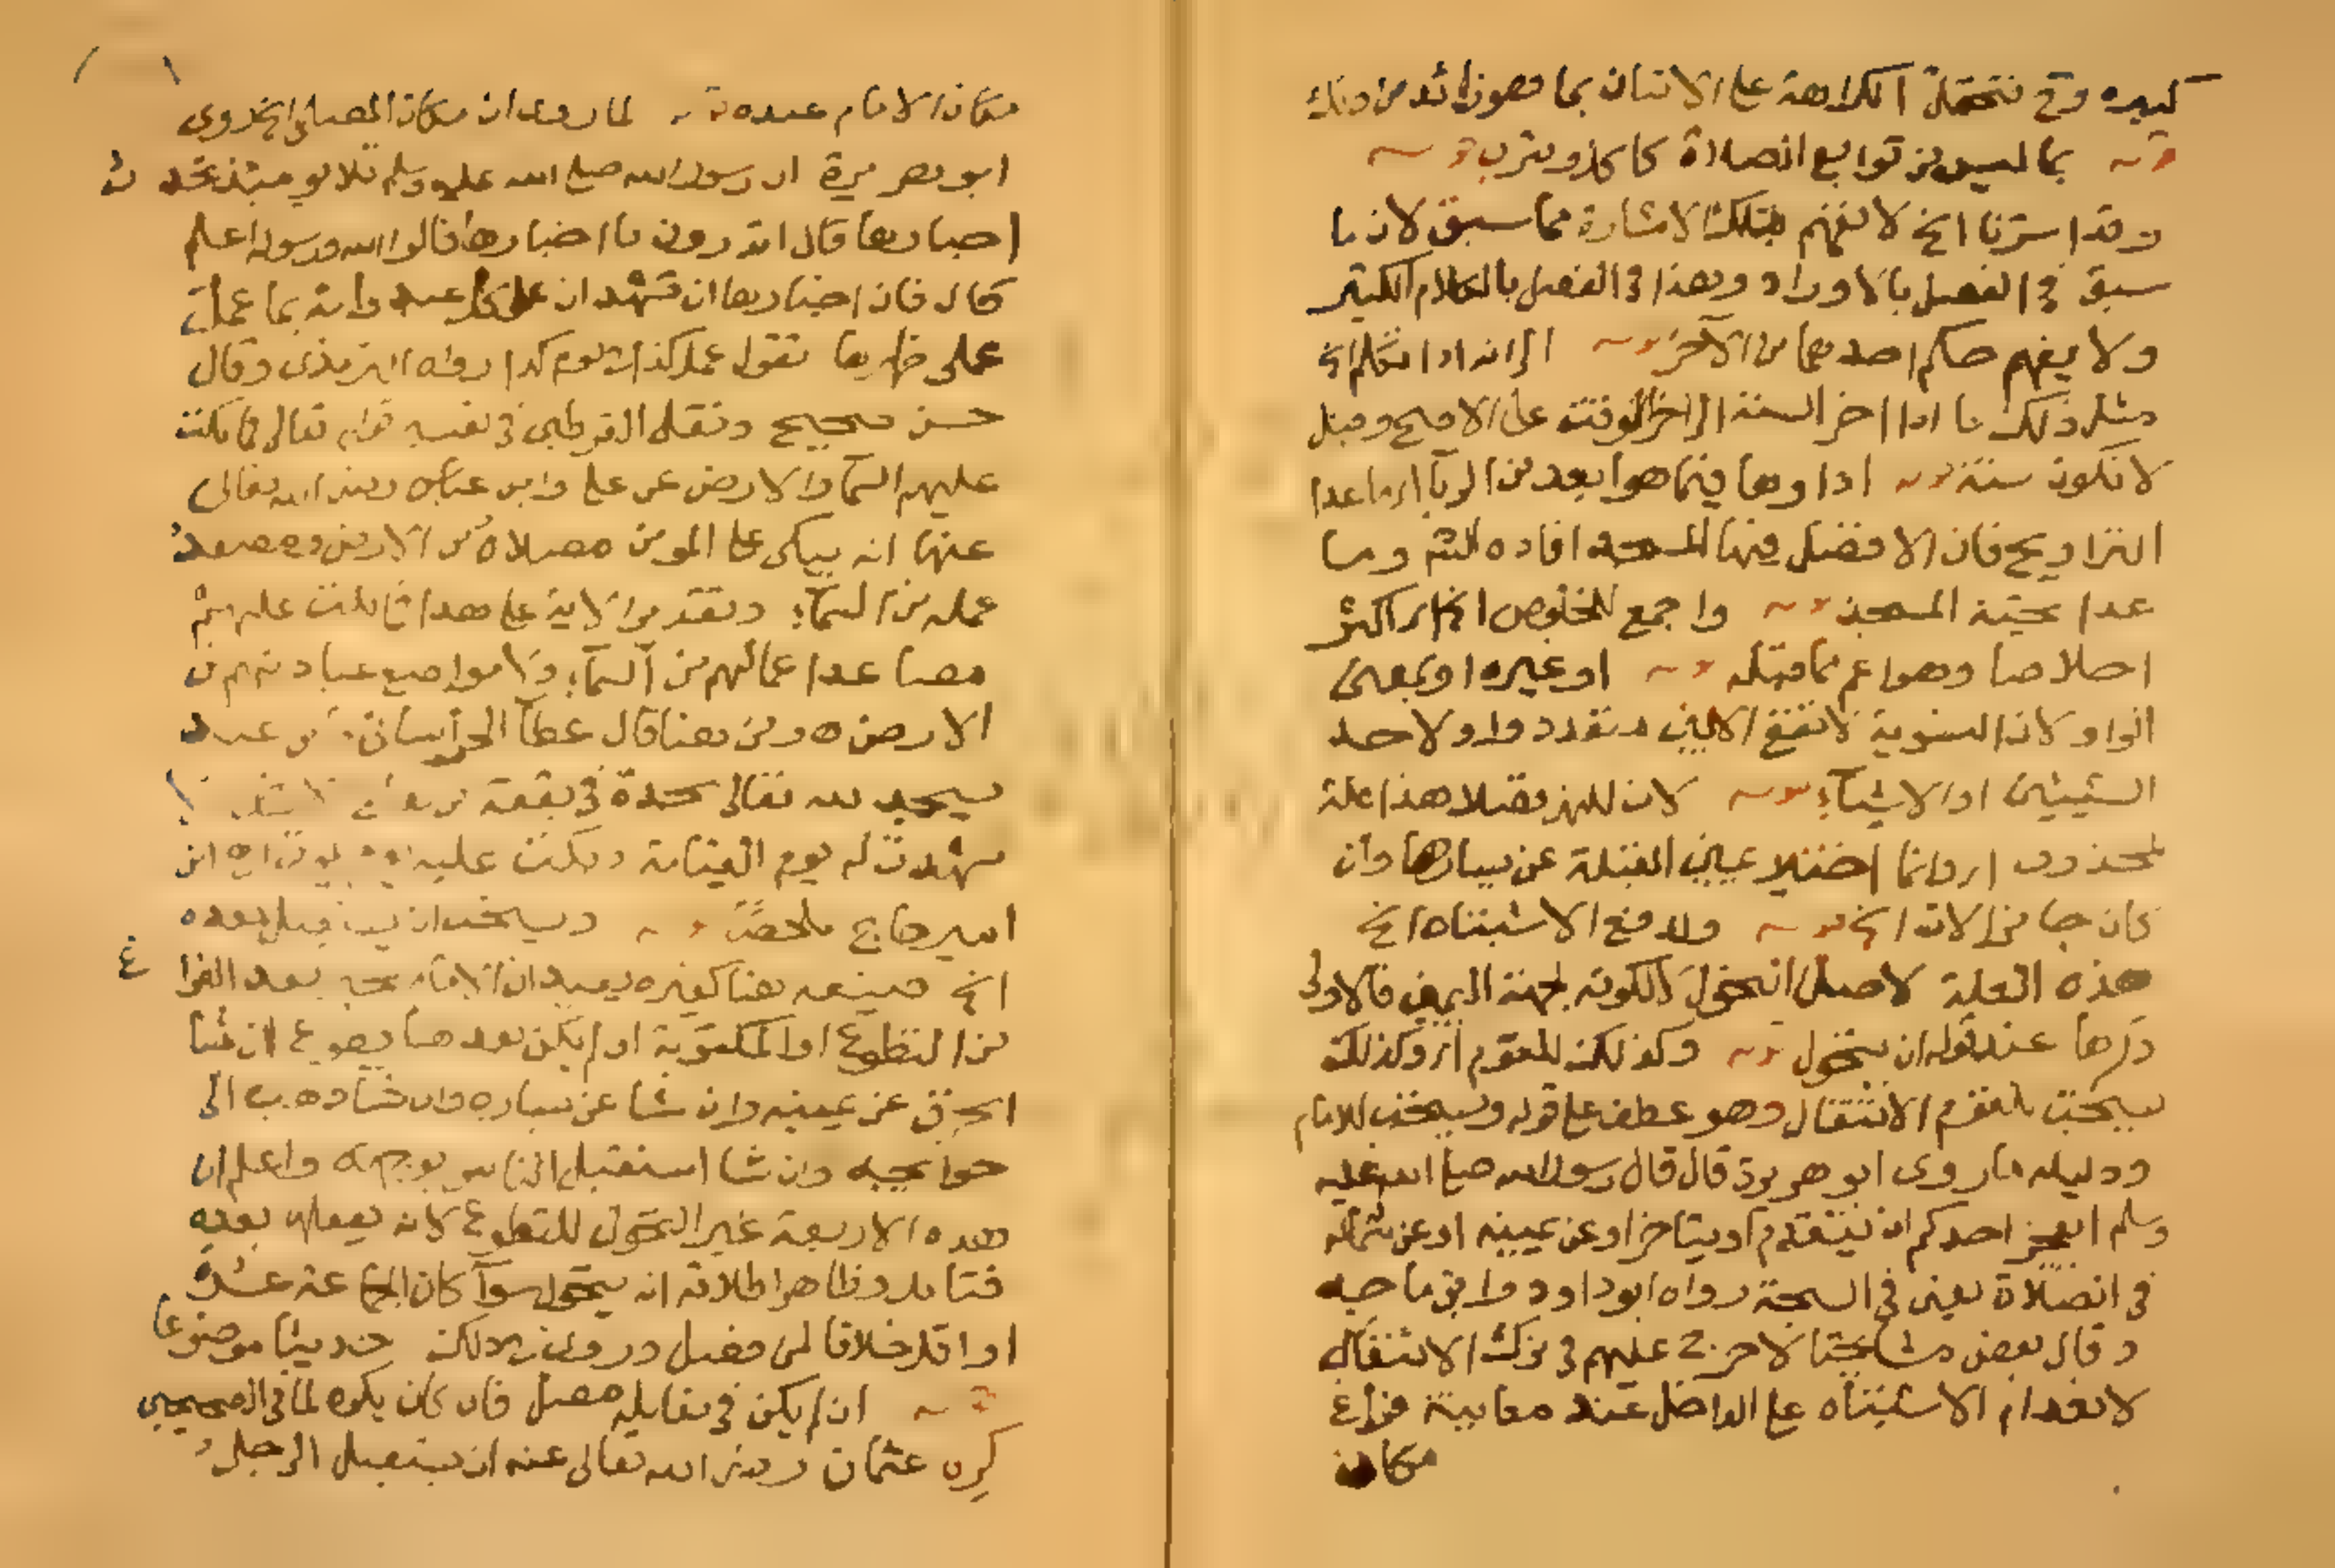 كبيره وقع فتحمل الكراهة على الاتيان بما هو زائد من ذلك
قوله بما ليس من توابع الصلاة كاكل وشرب قوله
وقد اشرنا الخ لا يفهم بتلك الاشارة مما سبق لان ما
سبق في الفصل بالاوراد وهذا في الفصل بالكلام الكثير
ولا يفهم حكم احدهما من الآخر قوله الا انه اذا تكلم الخ
مثل ذلك ما اذا اخر السنة الى اخر الوقت على الاصح وقيل
لا تكون سنة قوله اداوها فيما هو ابعد من الريا اي ما عدا
التراويح فان الافضل فيها المسجد افاده الشم وما
عدا تحية المسجد قوله واجمع للخلوص الخ اي اكثر
اخلاصا وهو اعم مما قبله قوله او غيره او بمعنى
الواو لان التسوية لا تقع الا بين متعدد واو لاحد
الشيئين او الاشياء قوله لان لليمين فضلا هذا علة
لمحذوف اي وانما اختير يمين القبلة عن يسارها وان
كان جائزا لانه الخ قوله ولدفع الاشتباه الخ
هذه العلة لاصل التحول لا لكونه لجهة اليمين فالاولى
ذكرها عند قوله ان يتحول قوله وكذلك للقوم اي وكذلك
يستحب للقوم الانتقال وهو عطف على قوله ويستحب للامام
ودليله ما روى ابو هريرة قال قال رسول الله صلى الله عليه
وسلم ايعجز احدكم ان يتقدم او يتاخر او عن يمينه او عن شماله
في الصلاة يعني في السبحة رواه ابو داود وابن ماجه
وقال بعض مشايخنا لا حرج عليهم في ترك الانتقال
لانعدام الاشتباه على الداخل عند معاينة فراغ
مكان
مكان الامام عنده قوله لما روى ان مكان المصلي الخ روى
ابو هريرة ان رسول الله صلى الله عليه وسلم تلا يومئذ تحدث
اخبارها قال اتدرون ما اخبارها قالوا الله ورسوله اعلم
قال فان اخبارها ان تشهد ان على كل عبد وامة بما عمل
على ظهرها تقول عمل كذا يوم كذا رواه الترمذي وقال
حسن صحيح ونقل القرطبي في تفسير قوله تعالى فما بكت
عليهم السما والارض عن علي وابن عباس رضي الله تعالى
عنهما انه يبكي على المومن مصلاه من الارض ومصعد
عمله من السماء وتقدير الاية على هذا فما بكت عليهم
مصاعد اعمالهم من السماء ولا مواضع عبادتهم من
الارض ومن هنا قال عطا الخراساني ما من عبد
يسجد لله تعالى سجدة في بقعة من بقاع الا
شهدت له يوم القيامة وبكت عليه يوم يموت اه ابن
امير حاج ملخصا قوله ويستحب ان يستقبل بعده
الخ صنيعه هنا كغيره يفيد ان الامام بعد الفراغ
من التطوع او المكتوبة اذا لم يكن بعدها تطوع ان شا
انحرف عن يمينه وان شا عن يساره وان شا ذهب الى
حوائجه وان شا استقبل الناس بوجهه واعلم ان
هذه الاربعة غير التحول للتطوع لانه يفعلها بعده
فتامل وظاهر اطلاقه انه يتحول سوآ كان الجماعة عشرة
او اقل خلافا لمن فصل وروى في ذلك حديثا موضوعا
قوله ان لم يكن في مقابله مصل فان كان يكره لما في الصحيحين
كره عثمان رضي الله تعالى عنه ان يستقبل الرجل